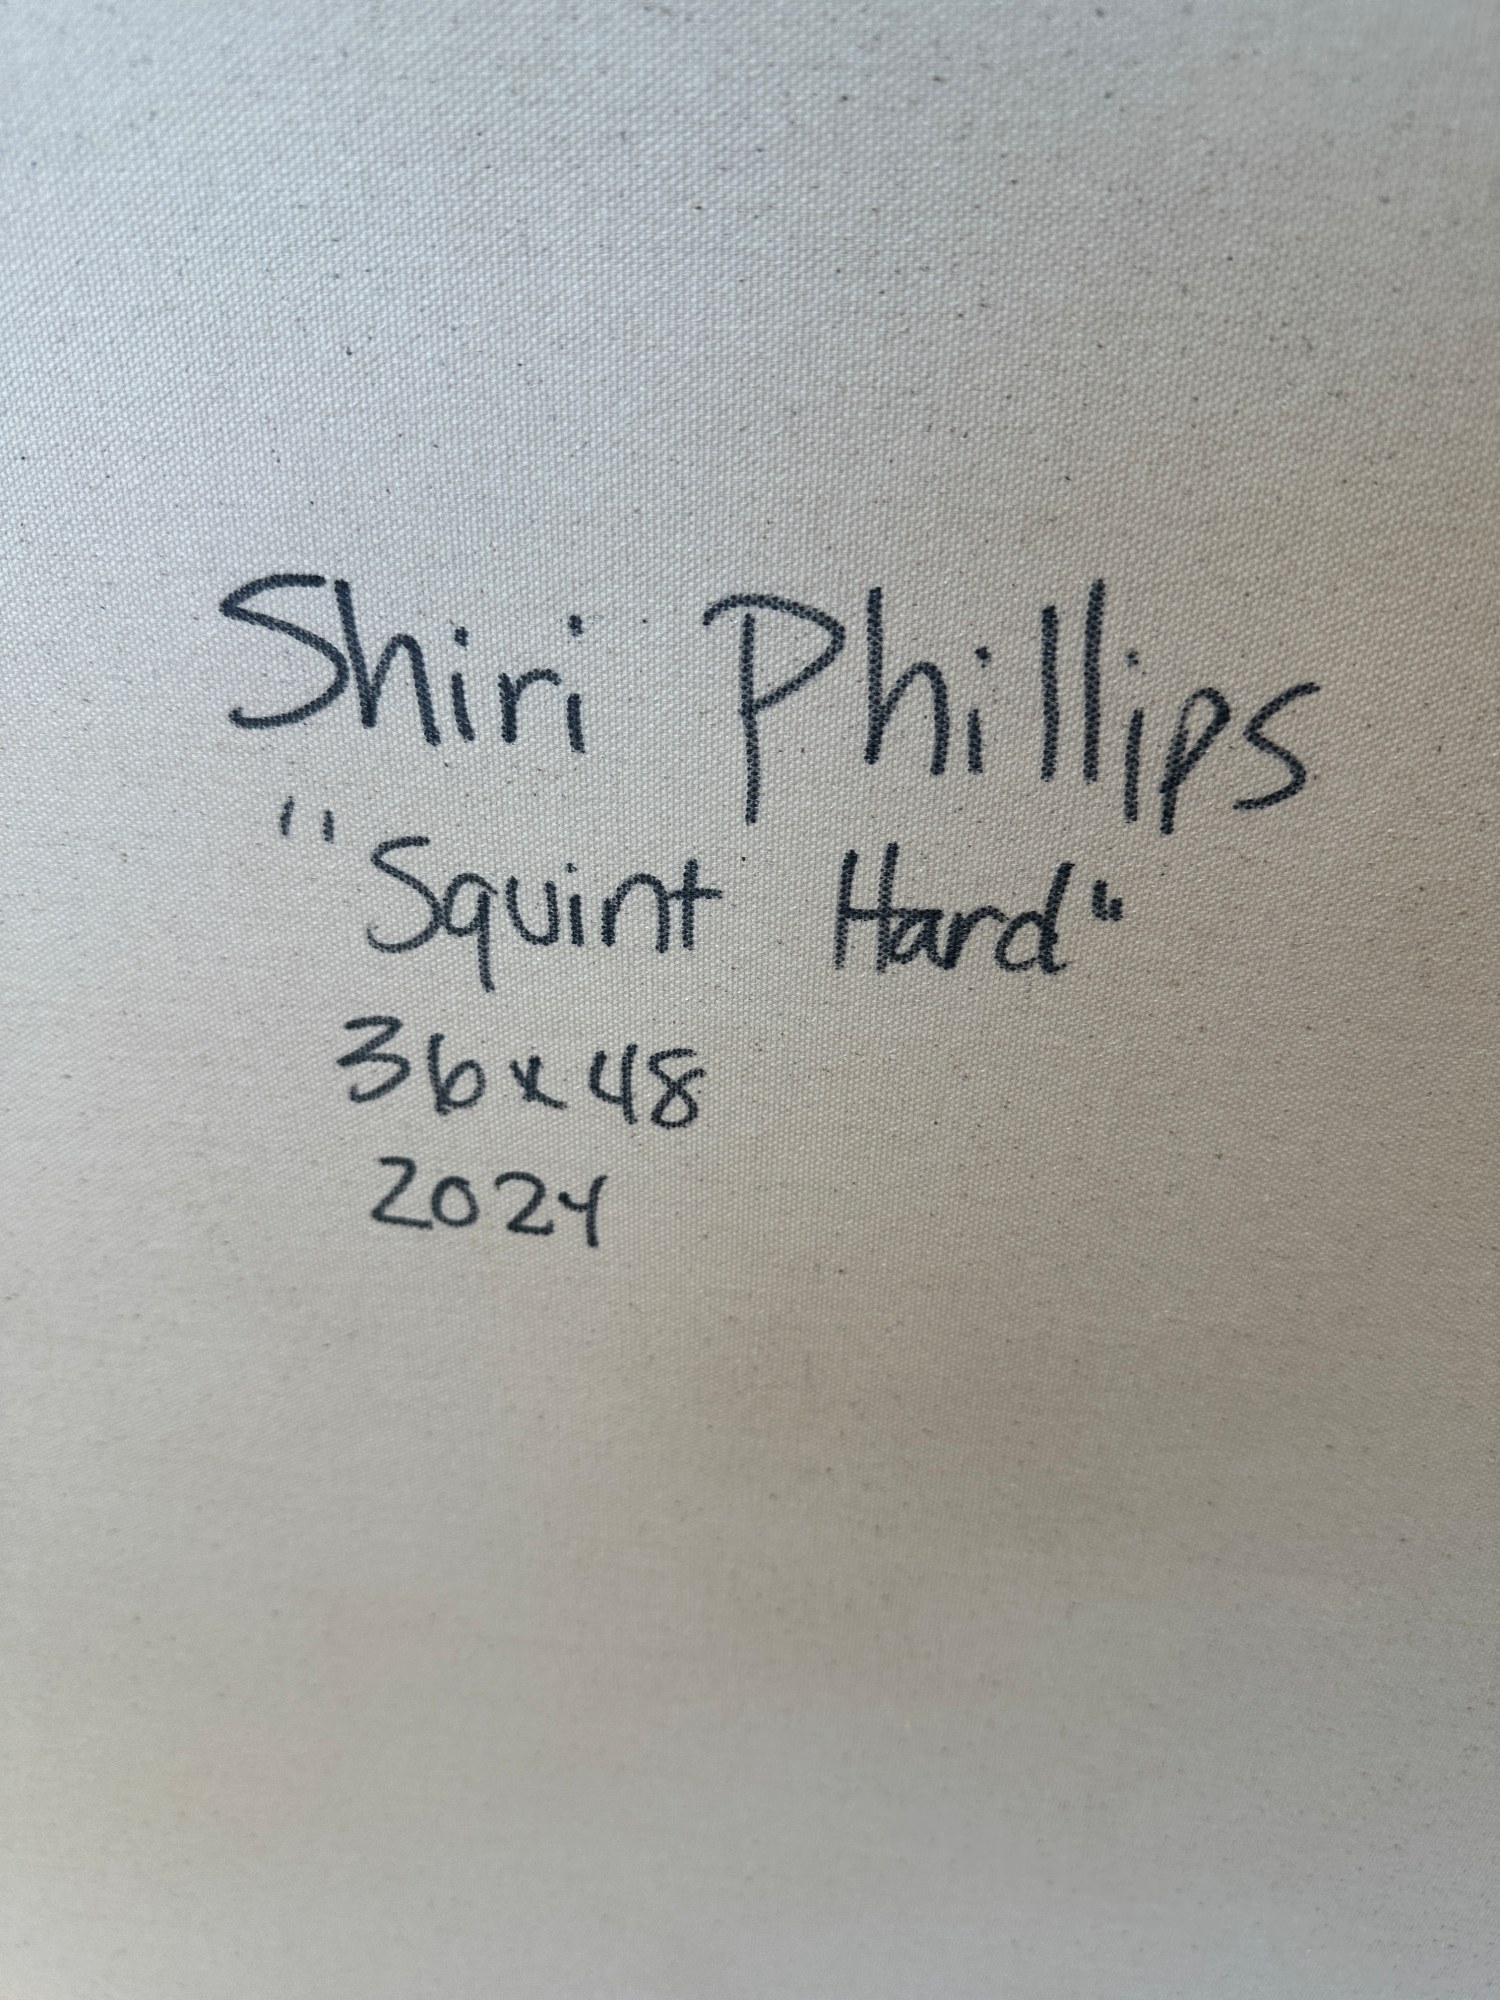 Shiri Phillips
"Squint Hard"
36x48
2024